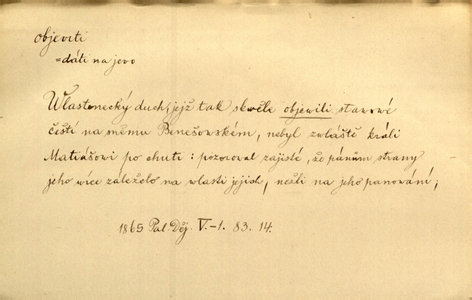 objeviti
=dáti na jevo
Wlastenecký duch, jejž tak skwěle objewili stawowé
čeští na sněmu Benešowském, nebyl zwláště králi
Matiášowi po chuti: pozorowal zajisté, že pánům strany
jeho wíce záleželo na wlasti jejich, nežli na jeho panowání;
1865 Pal. Děj. V.-1. 83. 14.